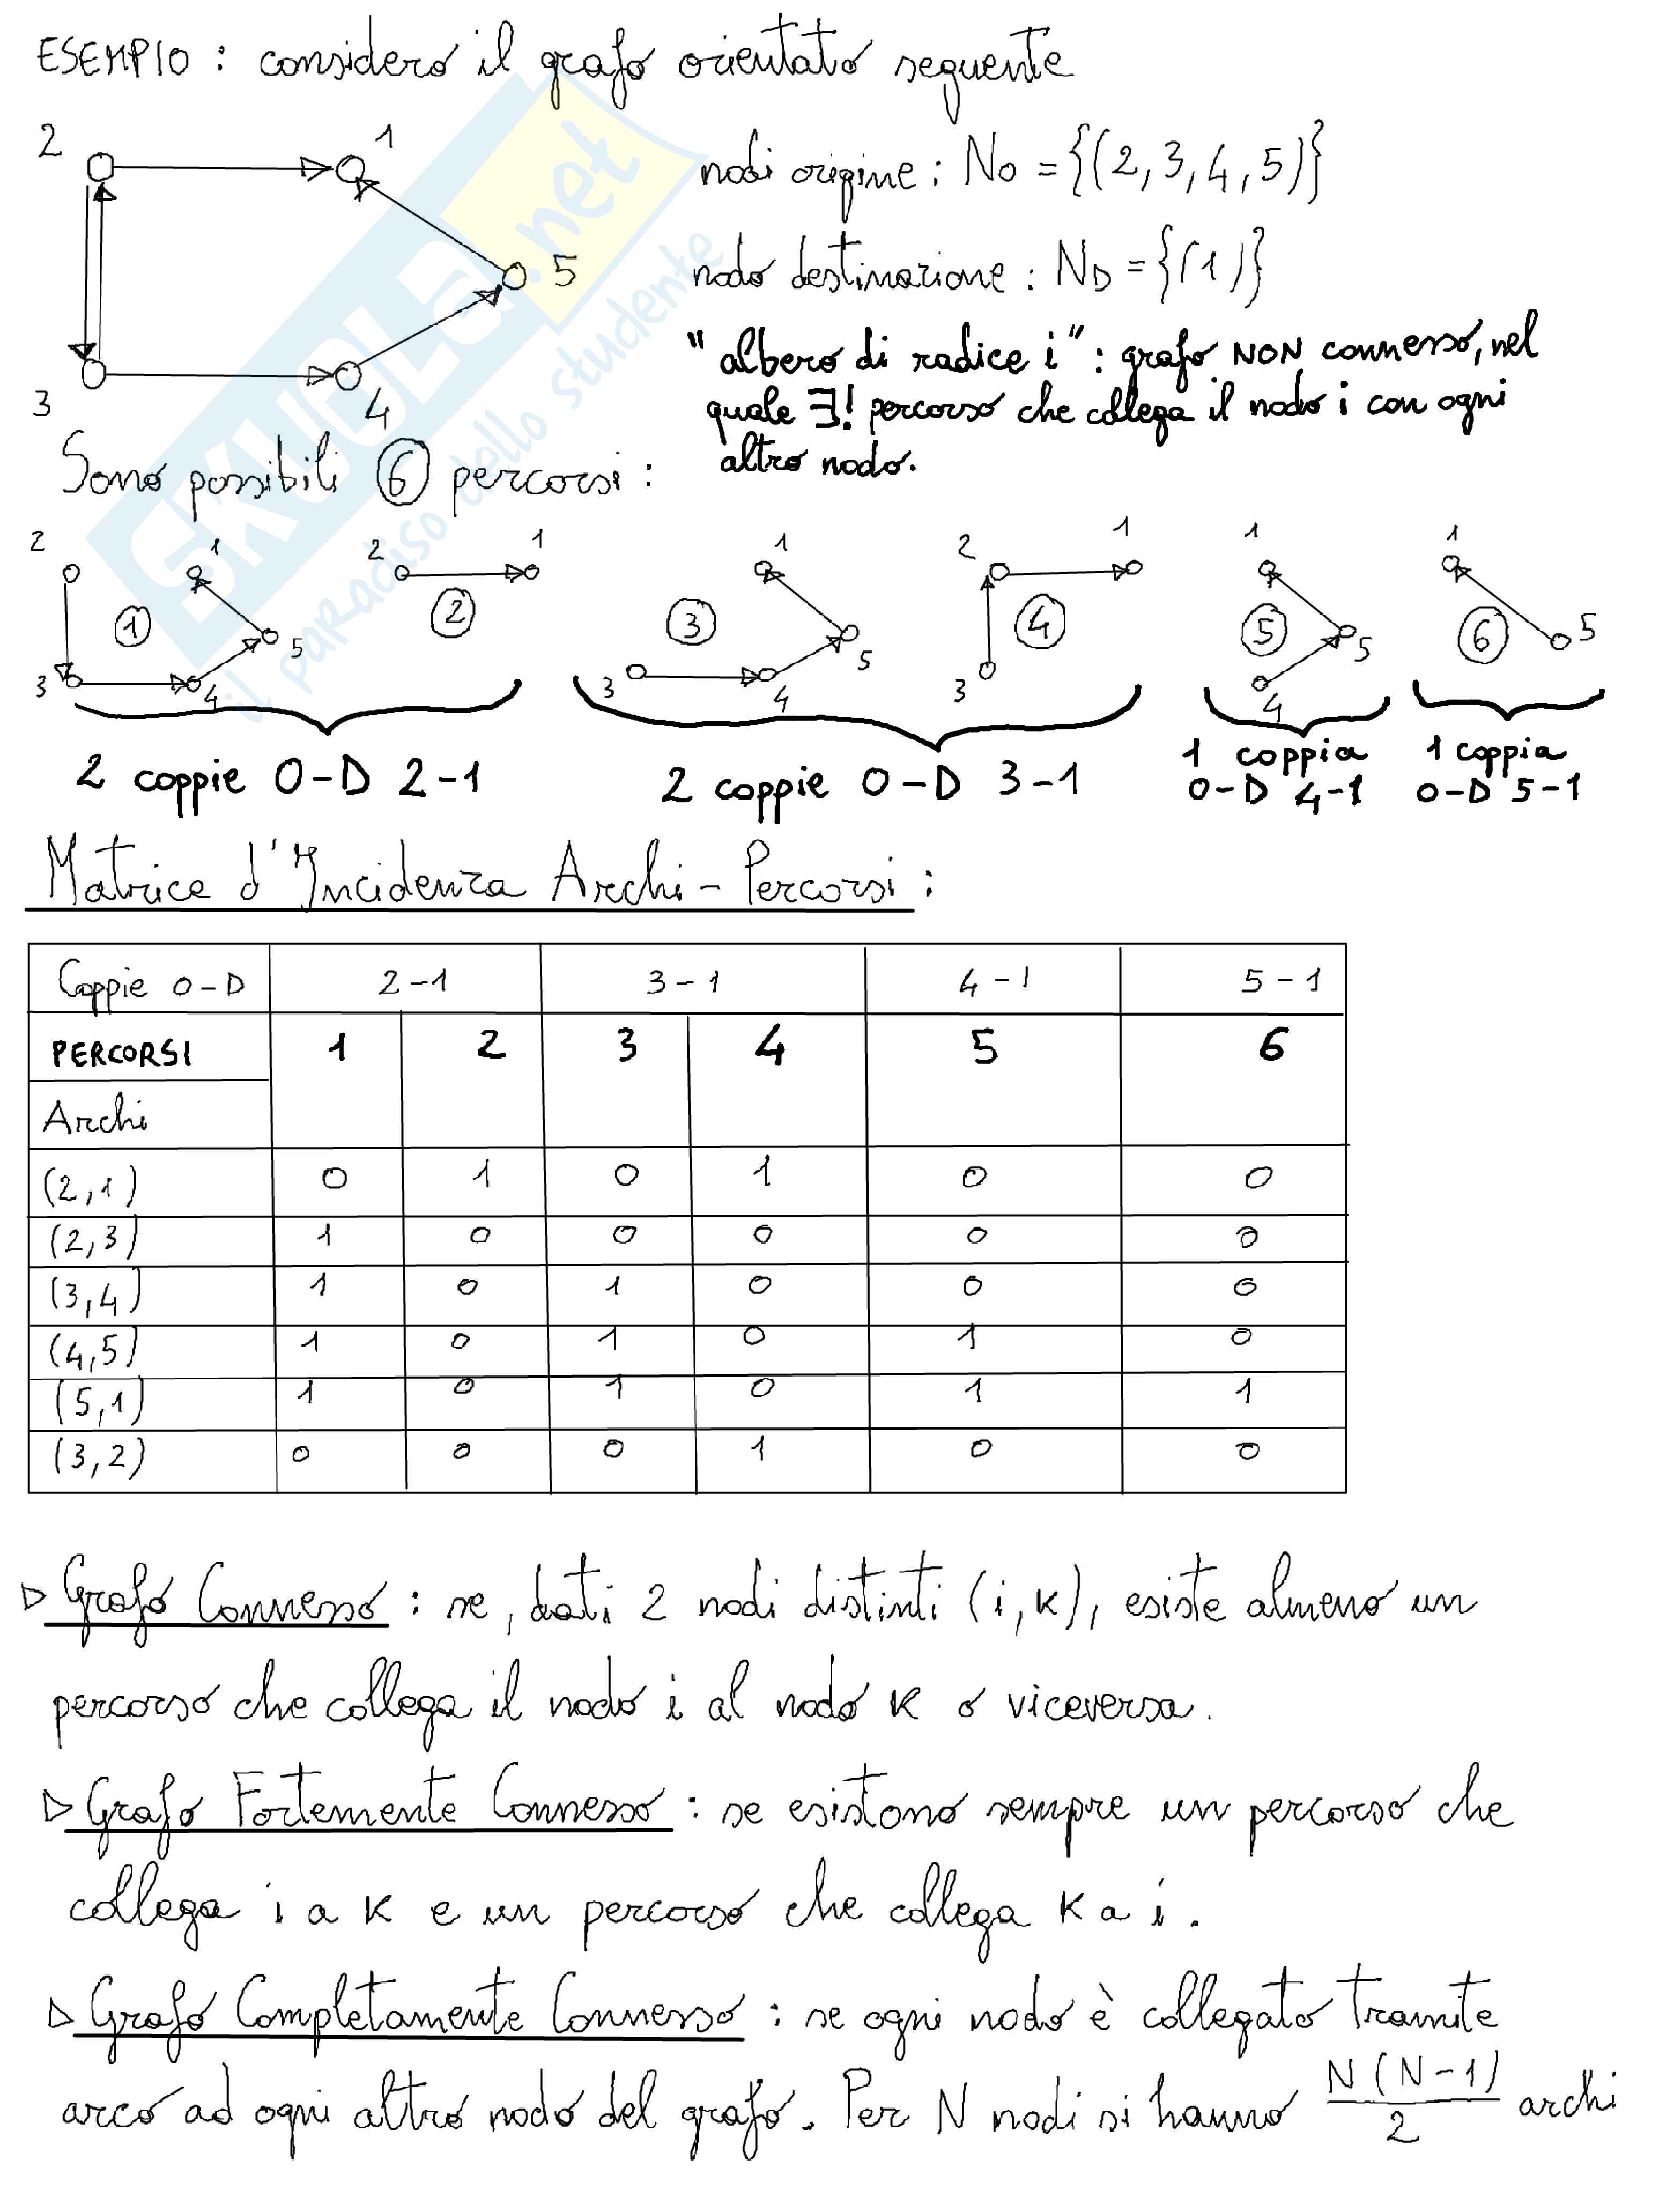 ESEMPIO : considero il grafo orientato seguente
2
1
nodi origine : No = {(2,3,4,5)}
5
nodo destinazione : ND = {(1)}
"albero di radice i" : grafo NON connesso, nel
quale ∃! percorso che collega il nodo i con ogni
altro nodo.
3
4
Sono possibili 6 percorsi :
2 1 2 1 1 2 1 1 1
1 2 3 4 5 6
5 5 5 5
3 4 3 4 3 4
2 coppie O-D 2-1
2 coppie O-D 3-1
1 coppia
O-D 4-1
1 coppia
O-D 5-1
SKUOLA.net
il paradiso dello studente
Matrice d'Incidenza Archi - Percorsi :
Coppie O-D 2-1 3-1 4-1 5-1
PERCORSI 1 2 3 4 5 6
Archi
(2,1) 0 1 0 1 0 0
(2,3) 1 0 0 0 0 0
(3,4) 1 0 1 0 0 0
(4,5) 1 0 1 0 1 0
(5,1) 1 0 1 0 1 1
(3,2) 0 0 0 1 0 0
▷ Grafo Connesso : se, dati 2 nodi distinti (i,K), esiste almeno un
percorso che collega il nodo i al nodo K o viceversa.
▷ Grafo Fortemente Connesso : se esistono sempre un percorso che
collega i a K e un percorso che collega K a i.
▷ Grafo Completamente Connesso : se ogni nodo è collegato tramite
arco ad ogni altro nodo del grafo. Per N nodi si hanno N(N-1)/2 archi